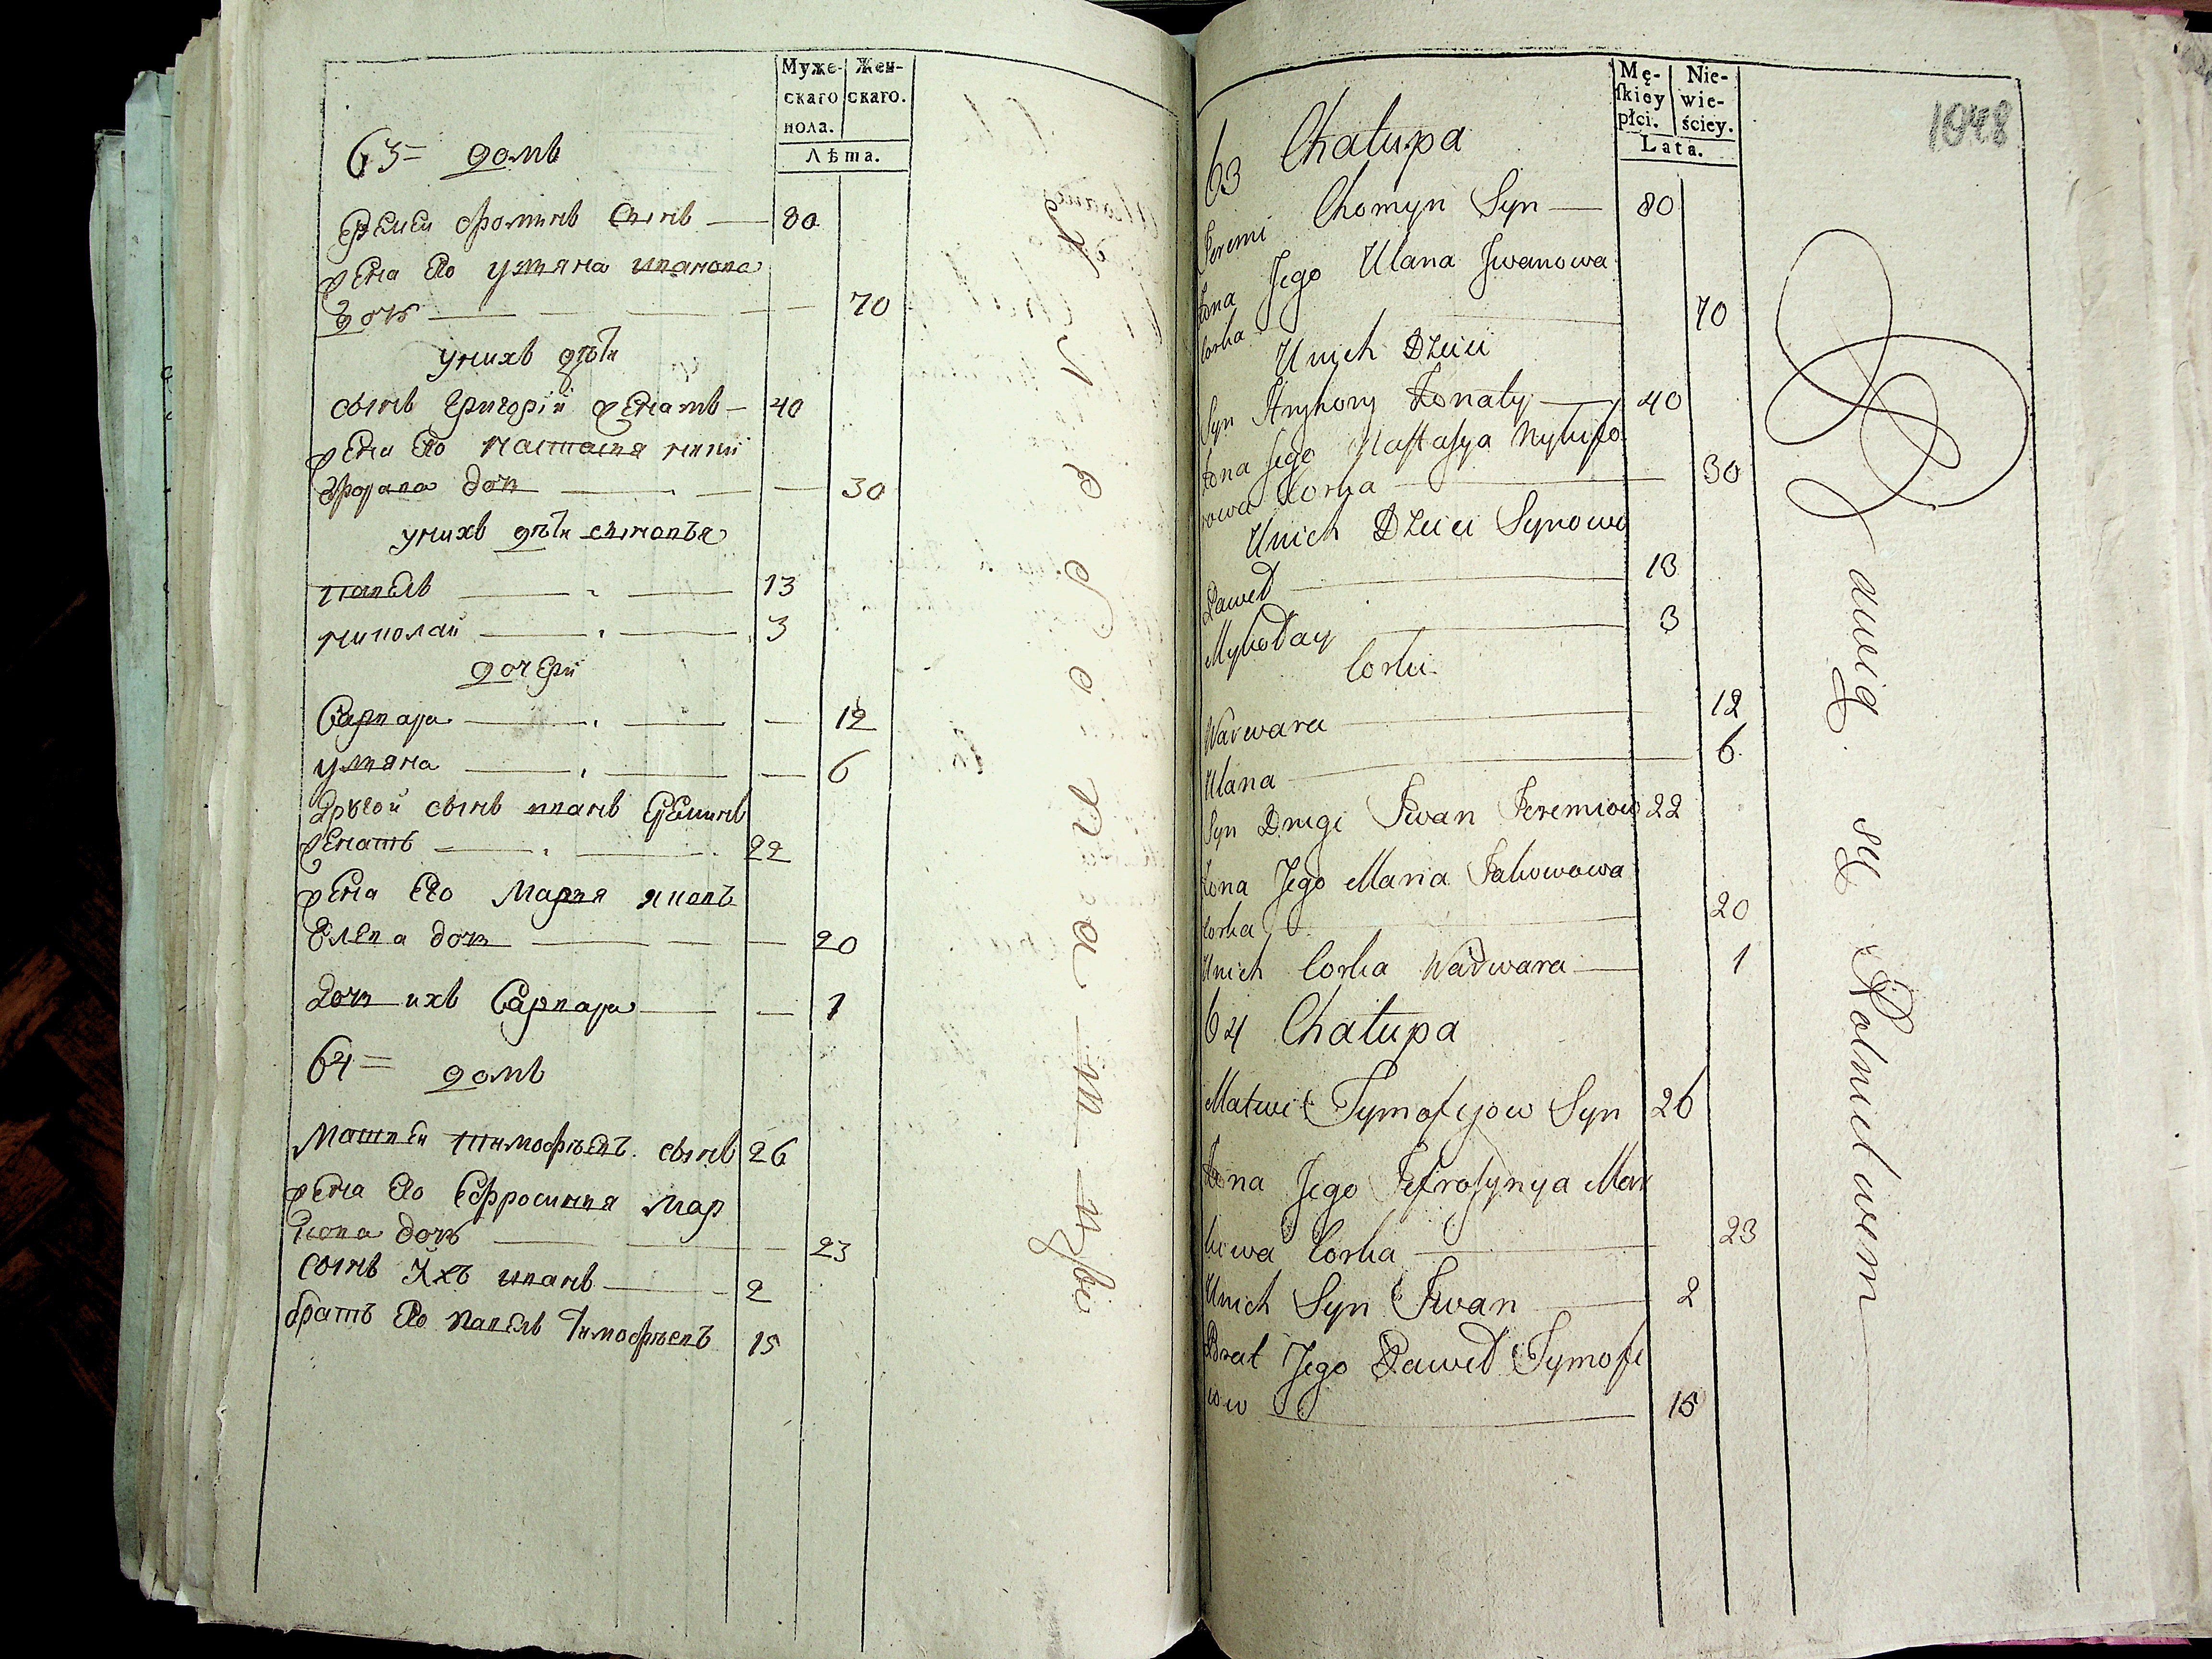 Муже-
скаго
пола.
Жен-
скаго.
Лѣта.
63= домъ
Еремеи Фоминъ Сынъ — 80
жена Его Уляна иванова
дочь — 70
у нихъ дѣти
сынъ Григорій женатъ — 40
жена Его Настасия ники
форава доч — 30
у нихъ дѣти сыновья
павелъ — 13
николаи — 3
дочери
Варвара — 12
уляна — 6
Другои сынъ иванъ Ереминъ
женатъ — 22
жена Его Мария яковъ
Елева доч — 20
Доч ихъ Варвара — 1
64= домъ
Матвеи тимофѣевъ сынъ 26
жена Его Ефросиния Мар
кова дочь — 23
сынъ Ихъ иванъ — 2
братъ Его павелъ Тимофѣевъ 15
Mę-
skiey
płci.
Nie-
wie-
ściey.
Lata.
1048
63 Chałupa
Jeremi Chomyn Syn — 80
Żona Jego Ulana Jwanowa
Corka — 70
U nich Dzieci
Syn Hryhory Żonaty — 40
Żona Jego Nastasya Nykifo
rowa Corka — 30
U nich Dzieci Synowo
Paweł — 13
Mykołay — 3
Corki
Warwara — 12
Ulana — 6
Syn Drugi Jwan Jeremiow 22
Żona Jego Maria Jakowowa
Corka — 20
U nich Corka Warwara — 1
64 Chałupa
Matwi Tymofyjow Syn 26
Żona Jego Jefrosynya Mar
kiwa Corka — 23
U nich Syn Jwan — 2
Brat Jego Paweł Tymofi
iow — 15
Bawią się Rolnictwem